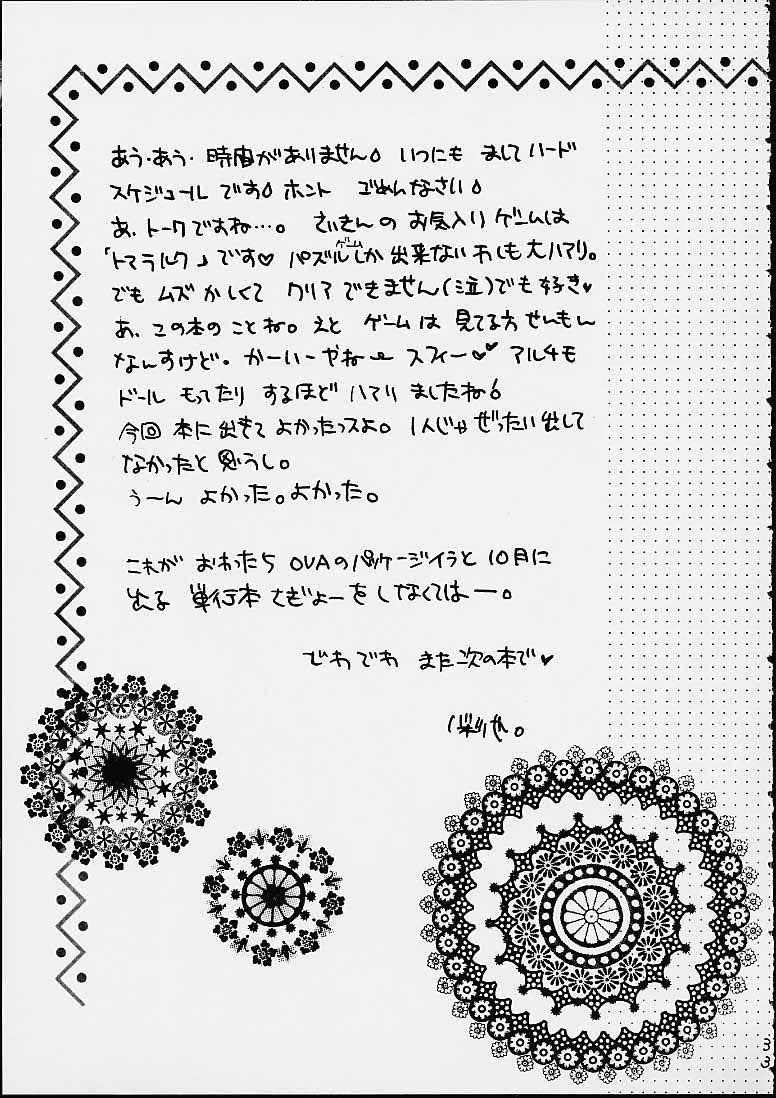 あう・あう・時間がありません💧 いつにも ましてハード
スケジュール です💧 ホント ゴめんなさい💧
あ、トークですね…。 さいきんの お気入りゲームは
「トマラルク」です♡ パズルゲームしか出来ないわしも大ハマリ。
でも ムズかしくて クリアできません(泣)でも好き♥
あ、この本のことね。えと ゲームは 見てる方せんもん
なんすけど。かーいーやねー スフィー♥♥ アルチモ
ドール もってたり するほど ハマりましたね💧
今回 本に出せて よかったっスよ。 1人じゃ ぜったい出して
なかったと思うし。
うーん よかった。よかった。
これが おわったら OVAのパッケージイラと 10月に
出る 単行本 さぎょーをしなくてはー。
でわでわ また次の本で♥
33